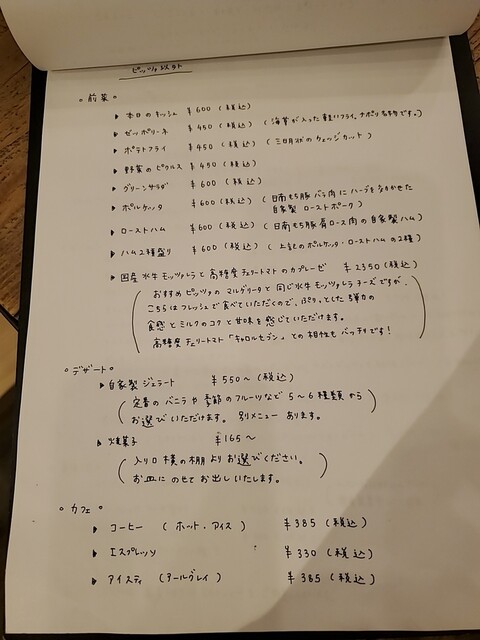 ピッツァ以外
。前菜。
▶ 本日のキッシュ ¥600 (税込)
▶ ゼッポリーネ ¥450 (税込) (海藻が入った軽いフライ。ナポリ名物です。)
▶ ポテトフライ ¥450 (税込) (三日月状のウェッジカット)
▶ 野菜のピクルス ¥450 (税込)
▶ グリーンサラダ ¥600 (税込)
▶ ポルケッタ ¥600 (税込) (日南もち豚バラ肉にハーブをきかせた
自家製ローストポーク)
▶ ローストハム ¥600 (税込) (日南もち豚肩ロース肉の自家製ハム)
▶ ハム2種盛り ¥600 (税込) (上記のポルケッタ・ローストハムの2種)
▶ 国産水牛モッツァレラと高糖度チェリートマトのカプレーゼ ¥2350 (税込)
(おすすめピッツァのマルゲリータと同じ水牛モッツァレラチーズですが、
こちらはフレッシュで食べていただくので、ぷりっとした弾力の
食感とミルクのコクと甘味を感じていただけます。
高糖度チェリートマト「キャロルセブン」との相性もバッチリです!)
。デザート。
▶ 自家製ジェラート ¥550〜 (税込)
(定番のバニラや季節のフルーツなど5〜6種類から
お選びいただけます。別メニューあります。)
▶ 焼菓子 ¥165〜
(入り口横の棚よりお選びください。
お皿にのせてお出しいたします。)
。カフェ。
▶ コーヒー (ホット・アイス) ¥385 (税込)
▶ エスプレッソ ¥330 (税込)
▶ アイスティ (アールグレイ) ¥385 (税込)